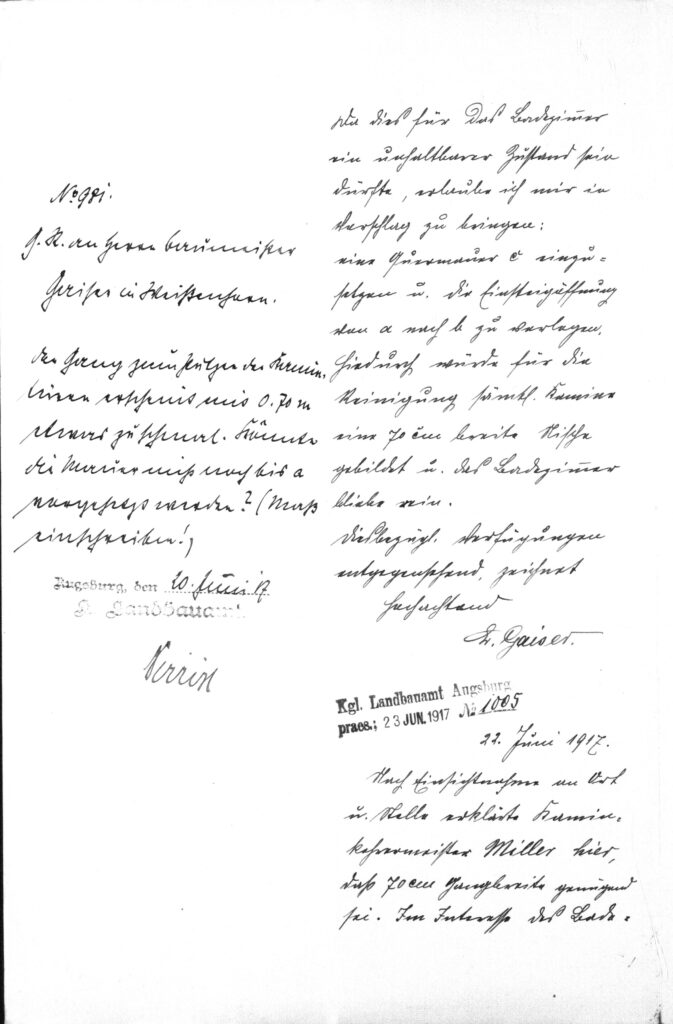 No 981.
g. R. an Herrn Baumeister
Gaiser in Weißenhorn.
Der Gang zum Putzen der Kamin-
türen erscheint mit 0.70 m
etwas zu schmal. Könnte
die Mauer nicht noch bis a
vorgesetzt werden? (Maß
einschreiben!)
Augsburg, den 20. Juni 17
K. Landbauamt.
Da dies für das Badezimmer
ein unhaltbarer Zustand sein
dürfte, erlaube ich mir in
Vorschlag zu bringen:
eine Quermauer c einzu=
setzen u. die Einsteigöffnung
von a nach b zu verlegen.
Hiedurch würde für die
Reinigung sämtl. Kamine
eine 70 cm breite Nische
gebildet u. das Badezimmer
bliebe rein.
Diesbezügl. Verfügungen
entgegensehend, zeichnet
Hochachtend
Gaiser.
Kgl. Landbauamt Augsburg
praes.; 23 JUN. 1917 № 1005
22. Juni 1917.
Nach Einsichtnahme an Ort
u. Stelle erklärte Kamin=
kehrermeister Miller hier,
daß 70 cm Gangbreite genügend
sei. Im Interesse des Bade=